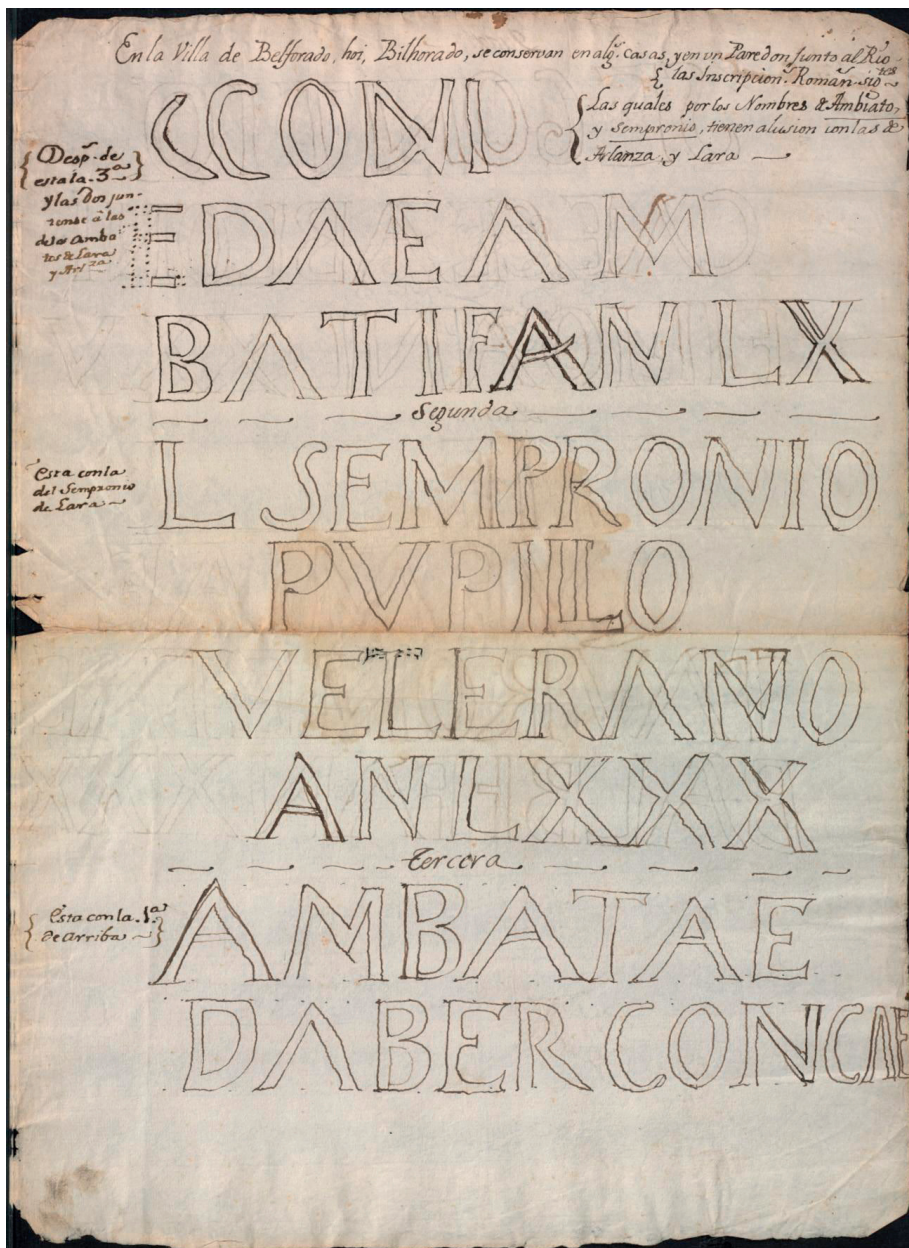 En la Villa de Belforado, hoi, Bilhorado, se conservan en alg.s casas, y en un Paredon junto al Rio
las Inscripcion.s Roman.s sig.tes
Las quales por los Nombres de Ambiato,
y Sempronio, tienen alusion con las de
Arlanza y Lara
CCONI
Desp.s de
esta la 3.a
y las dos jun-
tense à las
de los Amba
tos de Lara
y Arl.za
EDAEAM
BATIFANLX
Segunda
esta con la
del Sempronio
de Lara
L SEMPRONIO
PVPILLO
VELERANO
ANLXXX
tercera
Esta con la 1.a
de arriba
AMBATAE
DABERCONCAE